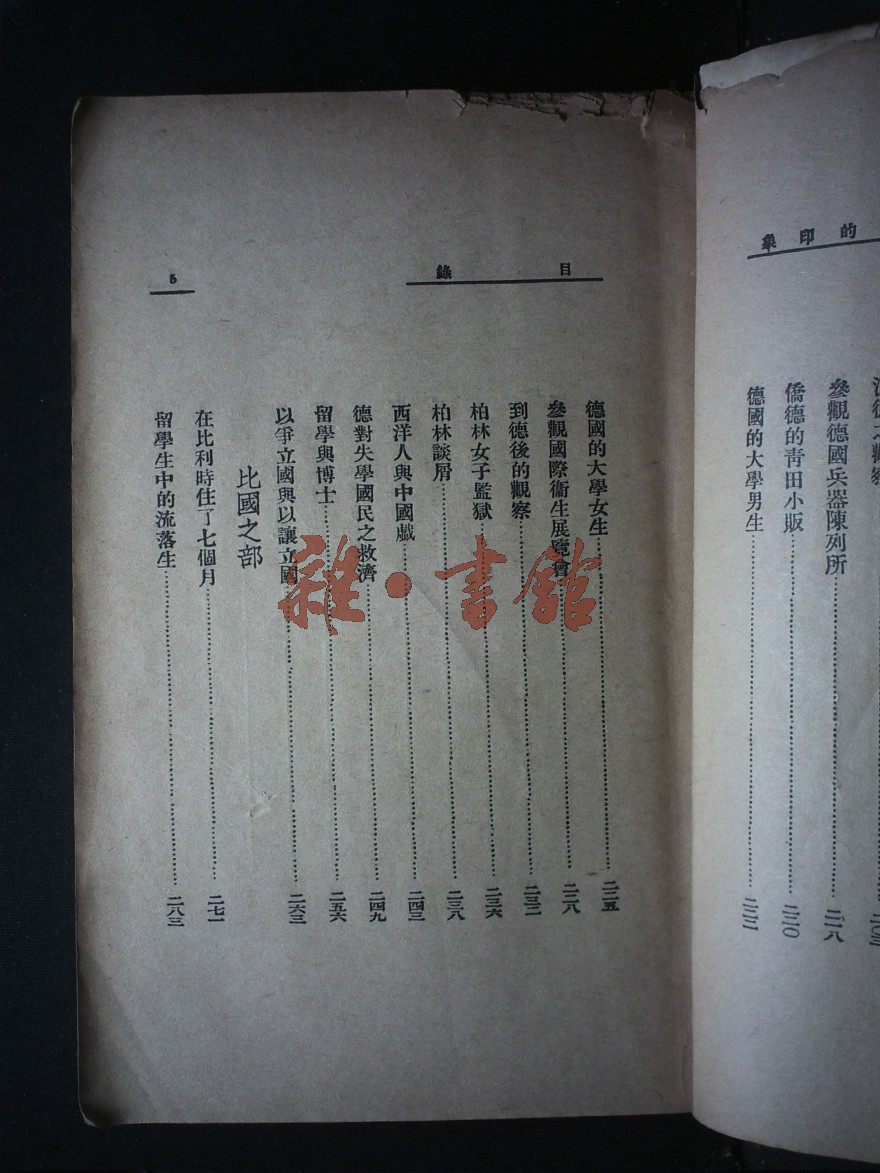 的印象
參觀德國兵器陳列所……二一八
僑德的青田小販……二二〇
德國的大學男生……二二二
目錄
5
德國的大學女生……二二五
參觀國際衞生展覽會……二二八
到德後的觀察……二三二
柏林女子監獄……二三六
柏林談屑……二三八
西洋人與中國戲……二四三
德對失學國民之救濟……二四九
留學與博士……二五六
以爭立國與以讓立國……二六三
比國之部
在比利時住了七個月……二七一
留學生中的流落生……二八三
雜·書館